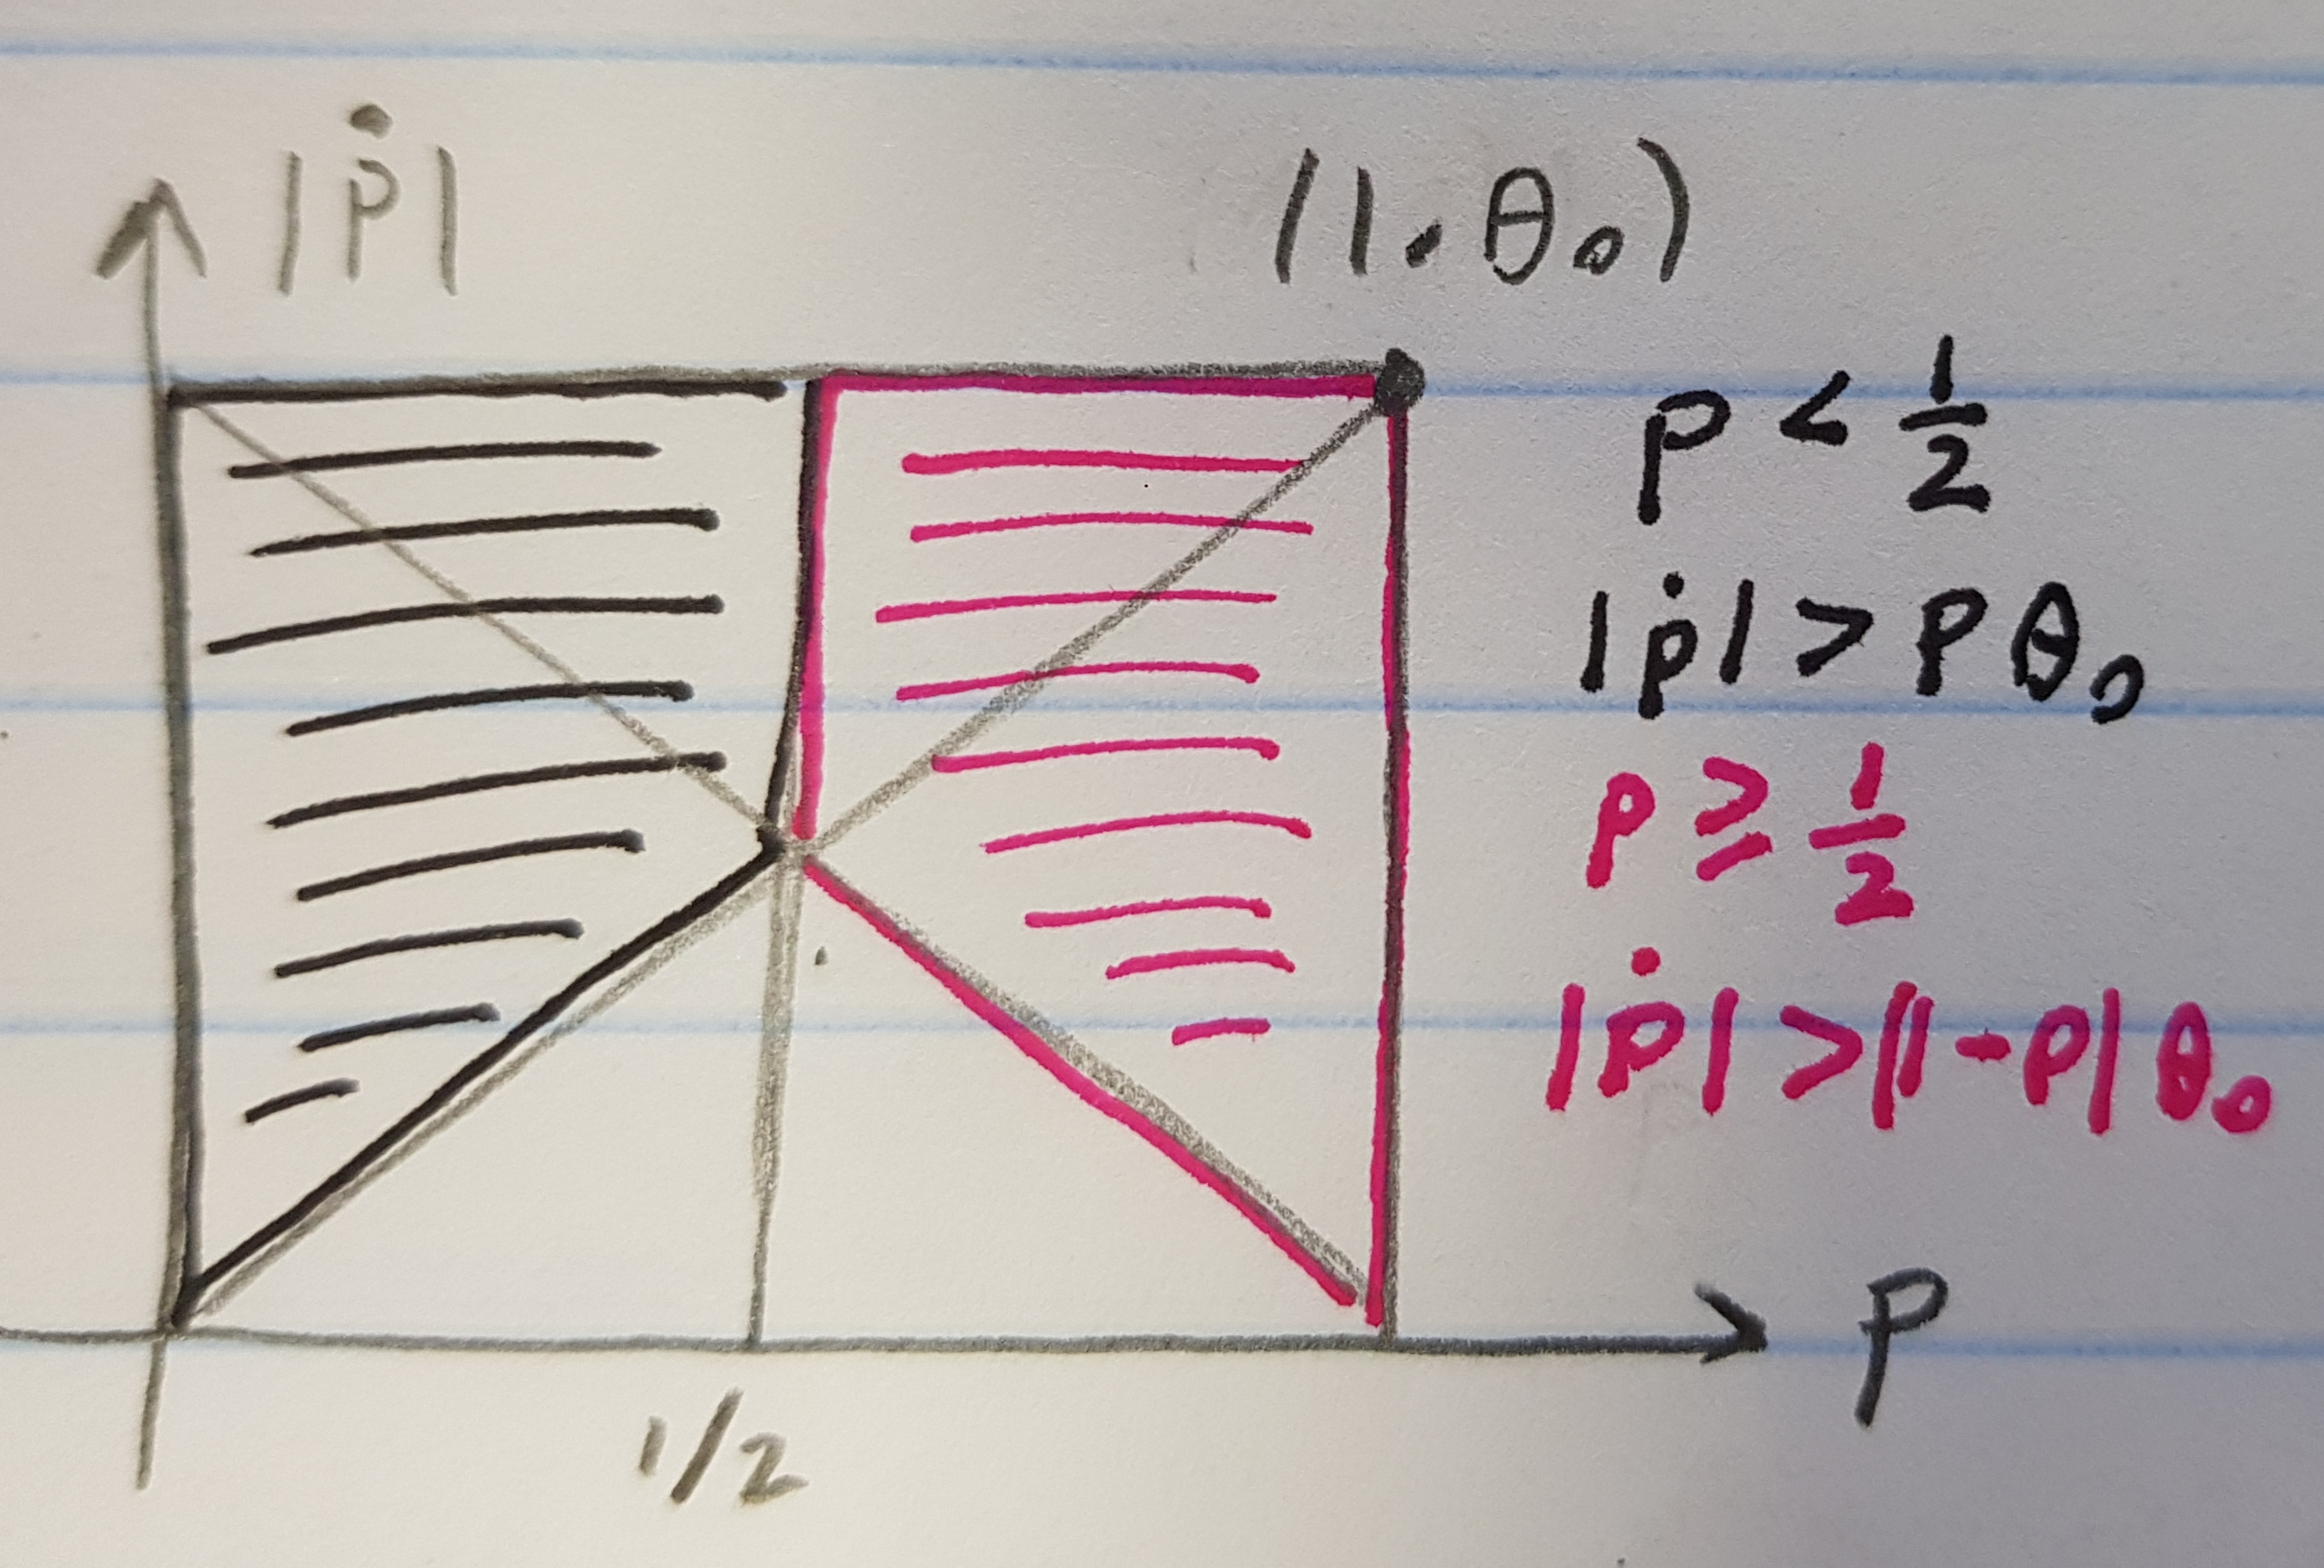 |ṗ|
(1.θ₀)
p < 1/2
|ṗ| > pθ₀
p ≥ 1/2
|ṗ| > |1-p|θ₀
p
1/2